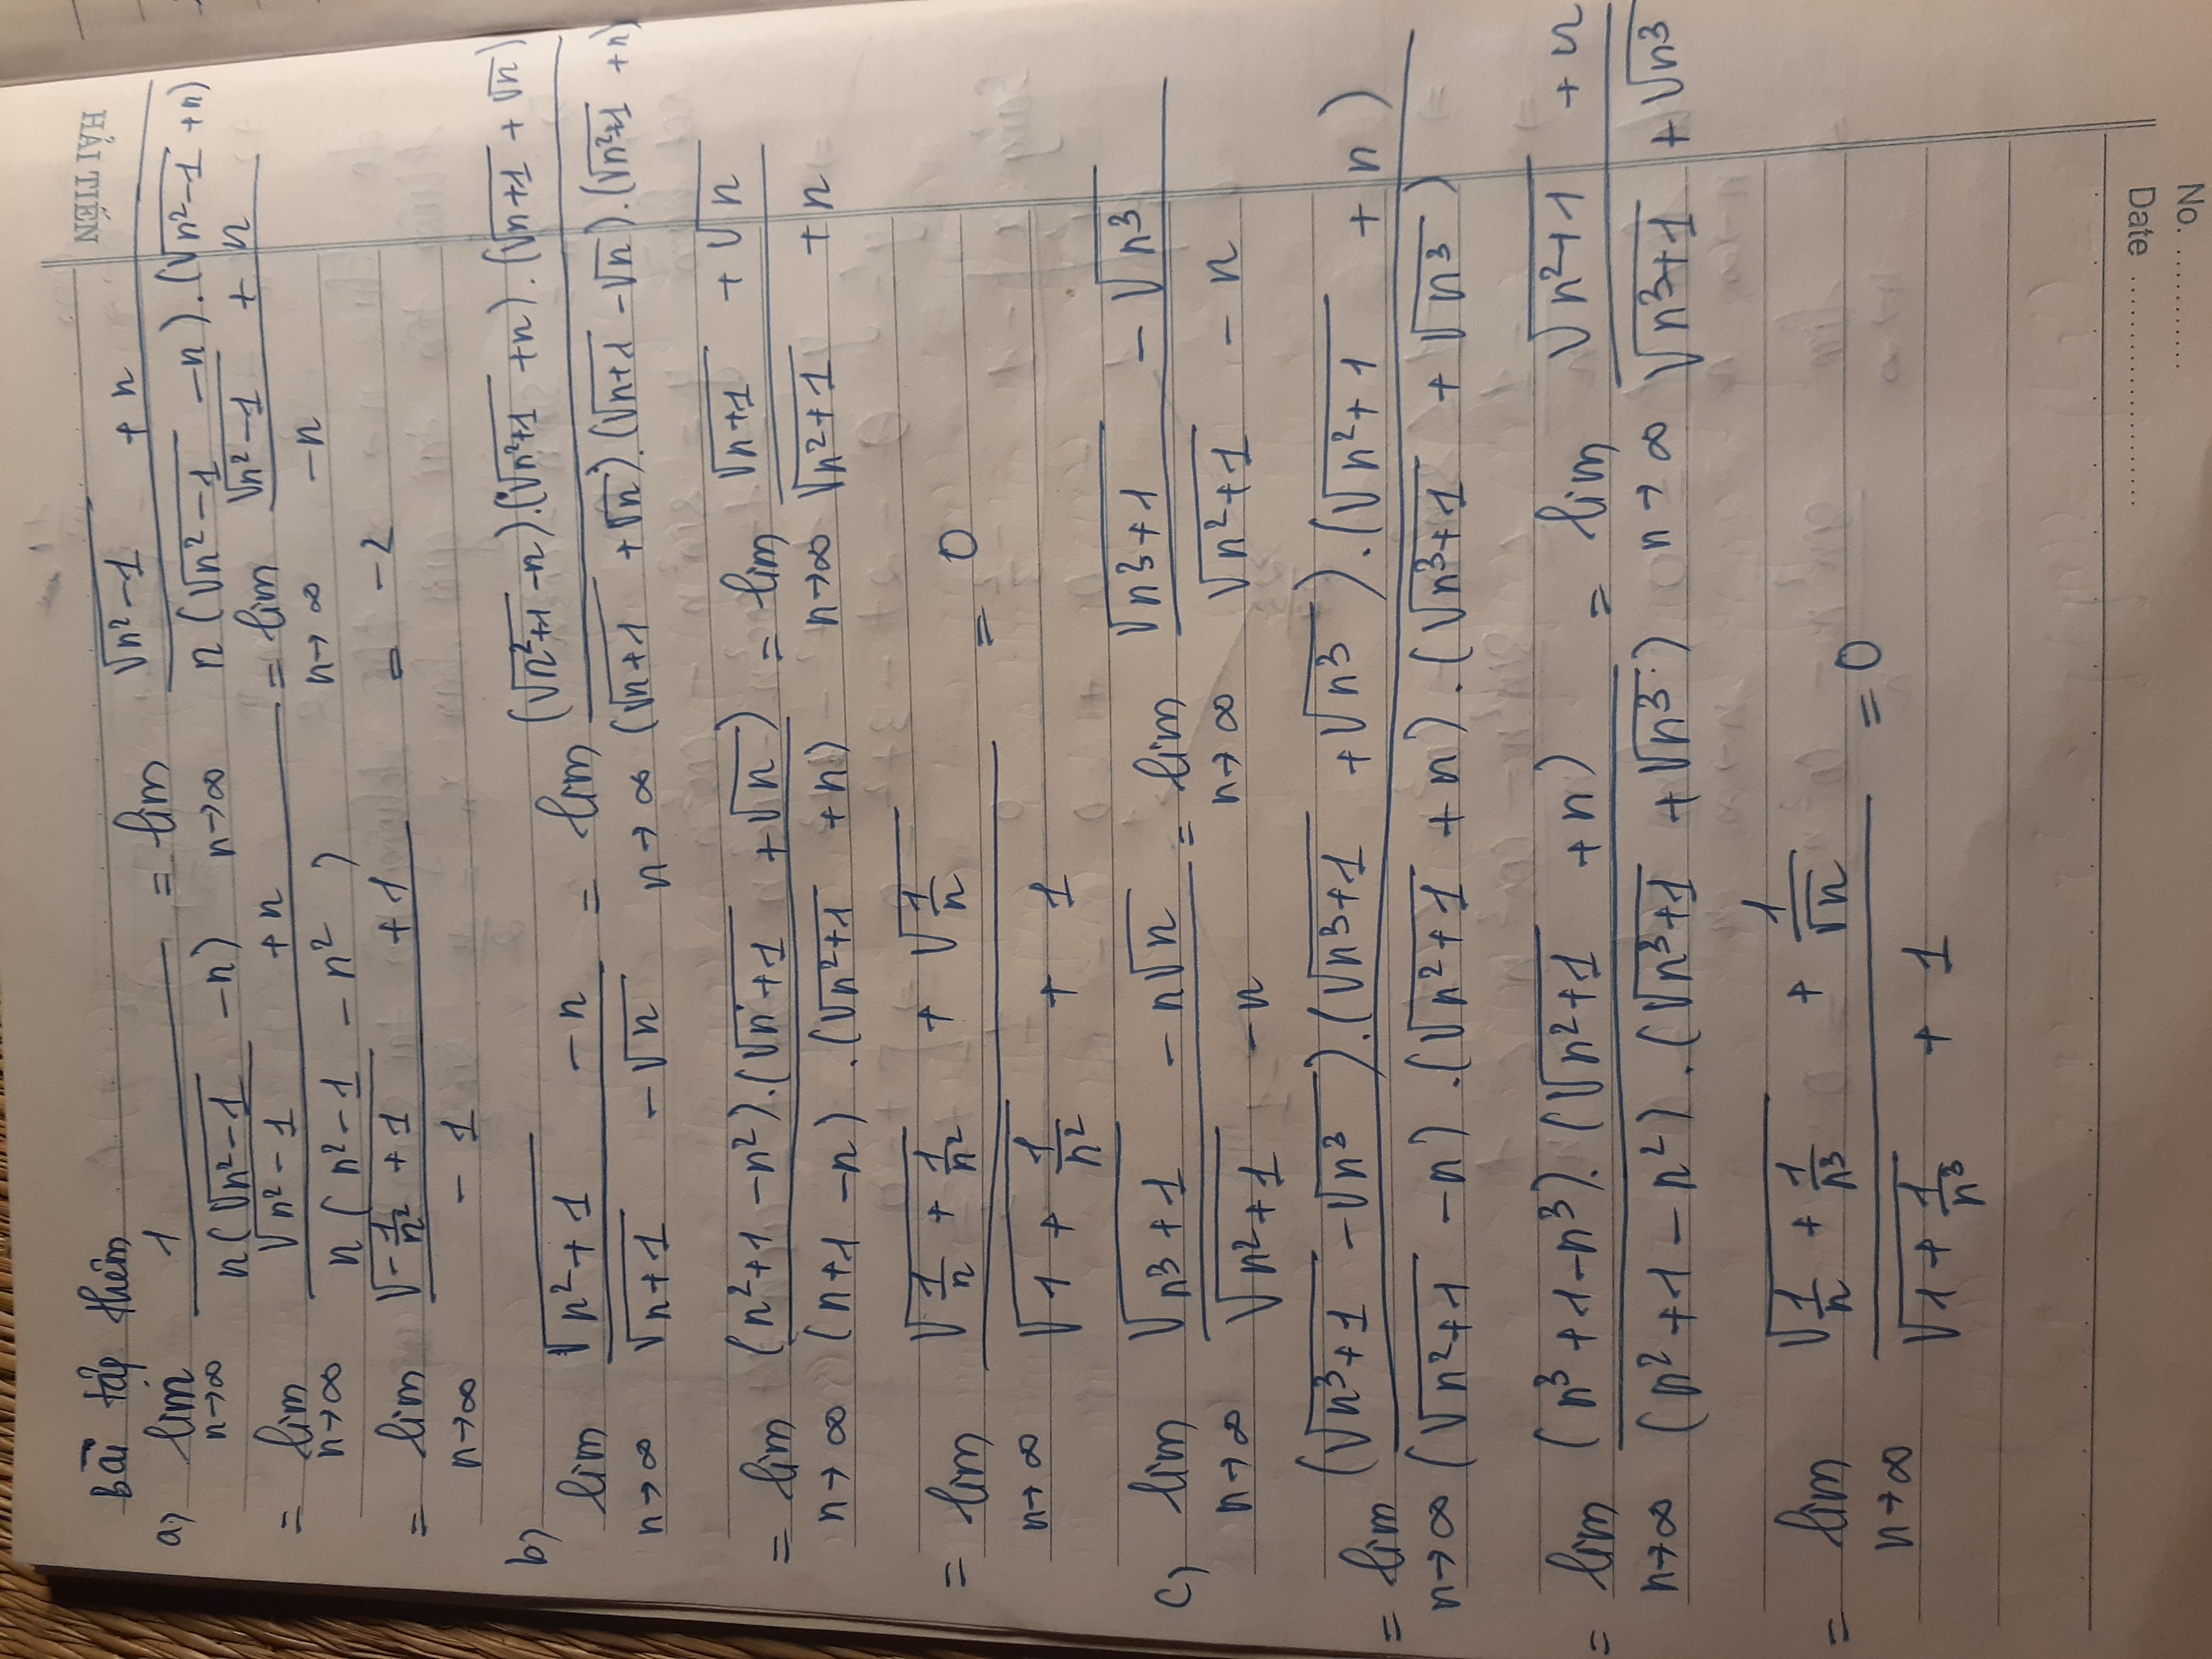 HẢI TIẾN
Bài tập thêm
a) lim n→∞ 1/(n(√(n²-1) - n)) = lim n→∞ (√(n²-1) + n)/(n(√(n²-1) - n).(√(n²-1) + n))
= lim n→∞ (√(n²-1) + n)/(n(n²-1 - n²)) = lim n→∞ (√(n²-1) + n)/(-n)
= lim n→∞ (√(-1/n² + 1) + 1)/(-1) = -2
b) lim n→∞ (√(n²+1) - n)/(√(n+1) - √n) = lim n→∞ ((√(n²+1) - n).(√(n²+1) + n).(√(n+1) + √n))/((√(n+1) + √n).(√(n+1) - √n).(√(n²+1) + n))
= lim n→∞ ((n²+1 - n²).(√(n+1) + √n))/((n+1 - n).(√(n²+1) + n)) = lim n→∞ (√(n+1) + √n)/(√(n²+1) + n)
= lim n→∞ (√(1/n + 1/n²) + √(1/n))/(√(1 + 1/n²) + 1) = 0
c) lim n→∞ (√(n³+1) - n√n)/(√(n²+1) - n) = lim n→∞ (√(n³+1) - √(n³))/(√(n²+1) - n)
= lim n→∞ ((√(n³+1) - √(n³)).(√(n³+1) + √(n³)).(√(n²+1) + n))/((√(n²+1) - n).(√(n²+1) + n).(√(n³+1) + √(n³)))
= lim n→∞ ((n³+1-n³).(√(n²+1) + n))/((n²+1-n²).(√(n³+1) + √(n³))) = lim n→∞ (√(n²+1) + n)/(√(n³+1) + √(n³))
= lim n→∞ (√(1/n + 1/n³) + 1/√n)/(√(1 + 1/n³) + 1) = 0
Date
No.